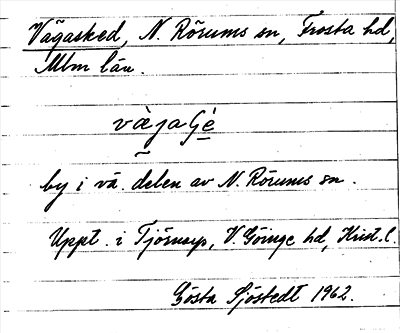 Vägasked, N. Rörums sn, Frosta hd,
Mlm län.
vàjaGè
by i vä. delen av N. Rörums sn.
Uppt. i Tjörnarp, V. Göinge hd, Krist. l.
Gösta Sjöstedt 1962.